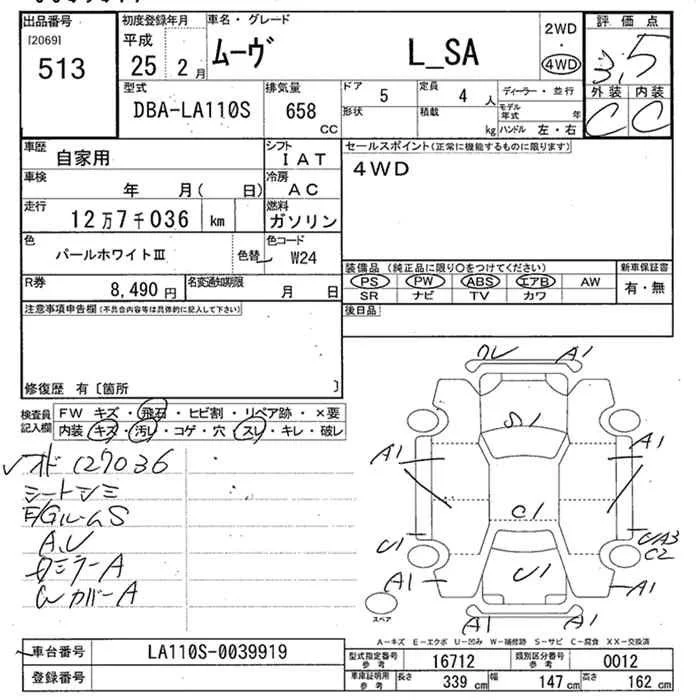 出品番号
[2069]
513
初度登録年月
平成
25 2月
車名・グレード
ムーヴ L_SA
2WD
・
4WD
評価点
3.5
外装 内装
C C
型式
DBA-LA110S
排気量
658
CC
ドア
5
定員
4 人
形状
積載
kg
ディーラー・並行
モデル年式 年
ハンドル 左・右
車歴
自家用
シフト
IAT
車検
年 月( 日)
冷房
AC
走行
12万7千036 km
燃料
ガソリン
色
パールホワイトⅢ
色替
色コード
W24
R券
8,490 円
名変通知期限
月 日
セールスポイント(正常に機能するものに限ります)
4WD
装備品 (純正品に限り○をつけてください)
PS PW ABS エアB AW
SR ナビ TV カワ
新車保証書
有・無
後日品
注意事項申告欄(不具合内容等は具体的に記入して下さい)
修復歴 有〔箇所 〕
検査員記入欄
FW キズ・飛石・ヒビ割・リペア跡・×要
内装 キズ・汚レ・コゲ・穴・スレ・キレ・破レ
オド 127036
シートシミ
E/GルームS
A.U
Wカバー A
A1
S1
A1
A1
C1
U1
U1
A1
A1
A1
C2
スペア
A-キズ E-エクボ U-凹み W-補修跡 S-サビ C-腐食 XX-交換済
車台番号
LA110S-0039919
登録番号
型式指定番号
参考
16712
類別区分番号
参考
0012
車庫証明用
参考
長さ 339 cm
幅 147 cm
高さ 162 cm